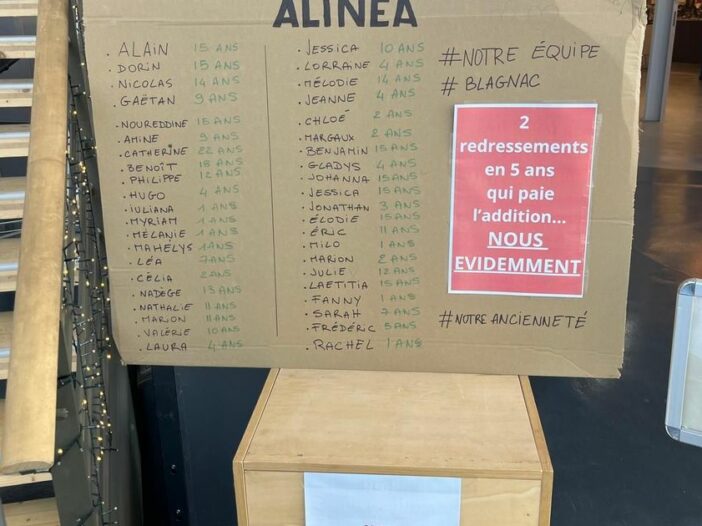 ALINEA
ALAIN 15 ANS
DORIN 15 ANS
NICOLAS 14 ANS
GAËTAN 9 ANS
NOUREDDINE 15 ANS
AMINE 9 ANS
CATHERINE 22 ANS
BENOÎT 18 ANS
PHILIPPE 12 ANS
HUGO 4 ANS
IULIANA 1 ANS
MYRIAM 1 ANS
MÉLANIE 1 ANS
MAHELYS 1 ANS
LÉA 7 ANS
CÉLIA 2 ANS
NADÈGE 13 ANS
NATHALIE 11 ANS
MARION 11 ANS
VALÉRIE 10 ANS
LAURA 4 ANS
JESSICA 10 ANS
LORRAINE 4 ANS
MÉLODIE 14 ANS
JEANNE 4 ANS
CHLOÉ 2 ANS
MARGAUX 2 ANS
BENJAMIN 15 ANS
GLADYS 4 ANS
JOHANNA 15 ANS
JESSICA 15 ANS
JONATHAN 3 ANS
ÉLODIE 15 ANS
ÉRIC 11 ANS
MILO 1 ANS
MARION 2 ANS
JULIE 12 ANS
LAETITIA 15 ANS
FANNY 1 ANS
SARAH 7 ANS
FRÉDÉRIC 5 ANS
RACHEL 1 ANS
#NOTRE ÉQUIPE
# BLAGNAC
2
redressements
en 5 ans
qui paie
l'addition...
NOUS
EVIDEMMENT
#NOTRE ANCIENNETÉ